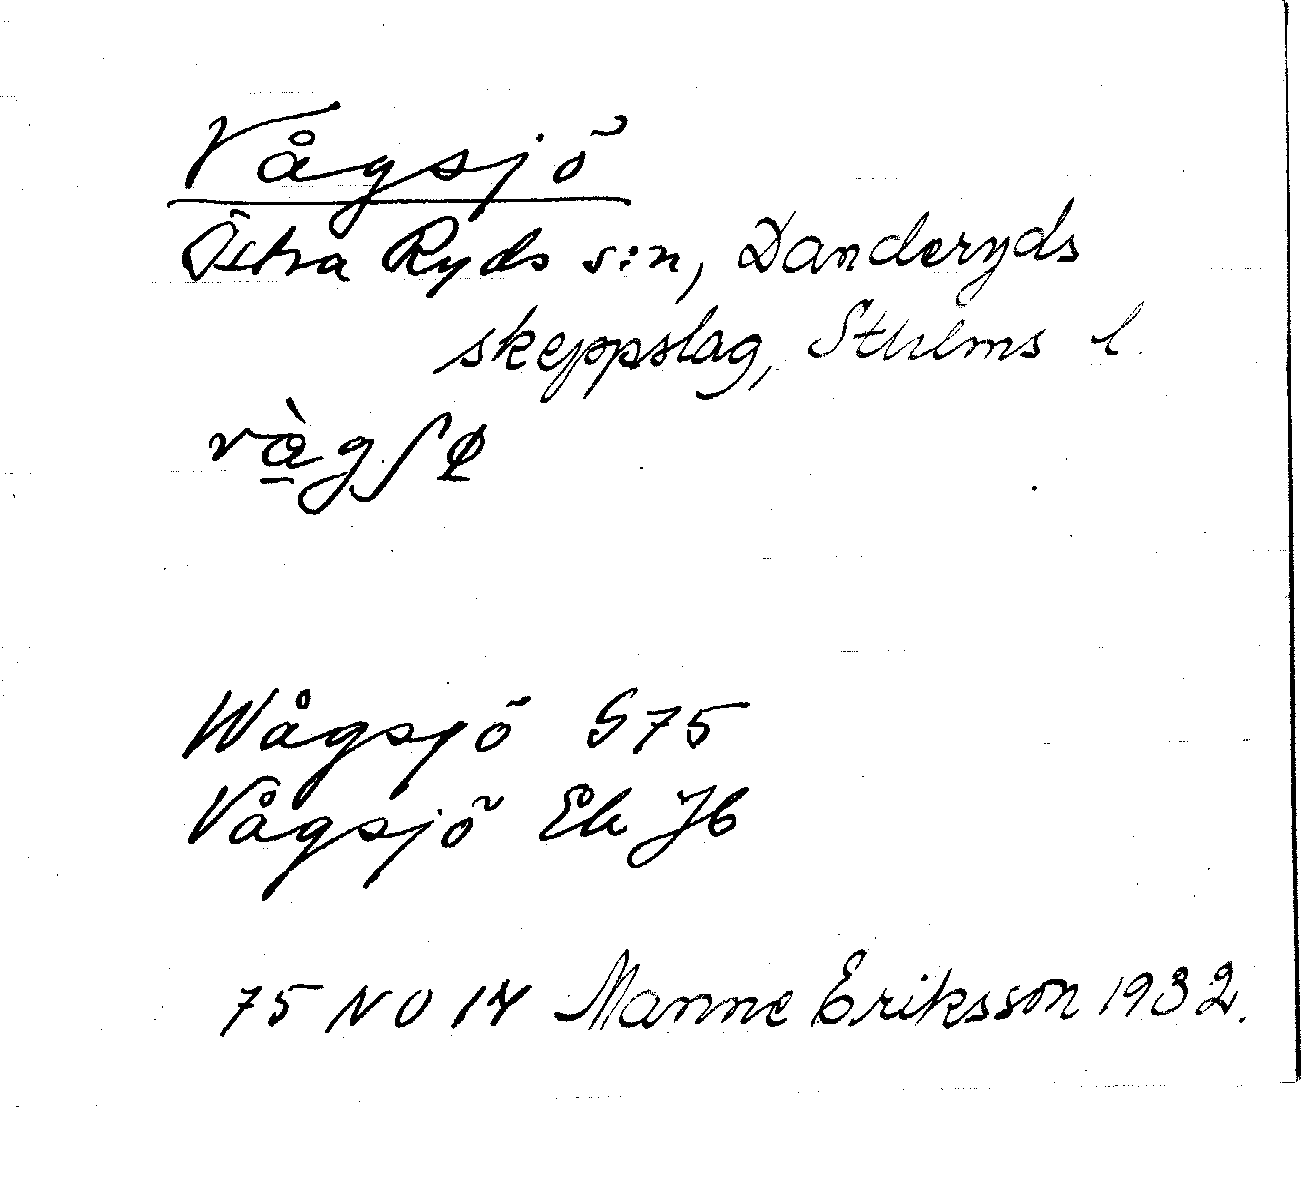 Vågsjö
Östra Ryds s:n, Danderyds
skeppslag, Sthlms l.
Wågsjö G75
Vågsjö Ek Jb
75 NO 14 Manne Eriksson 1932.